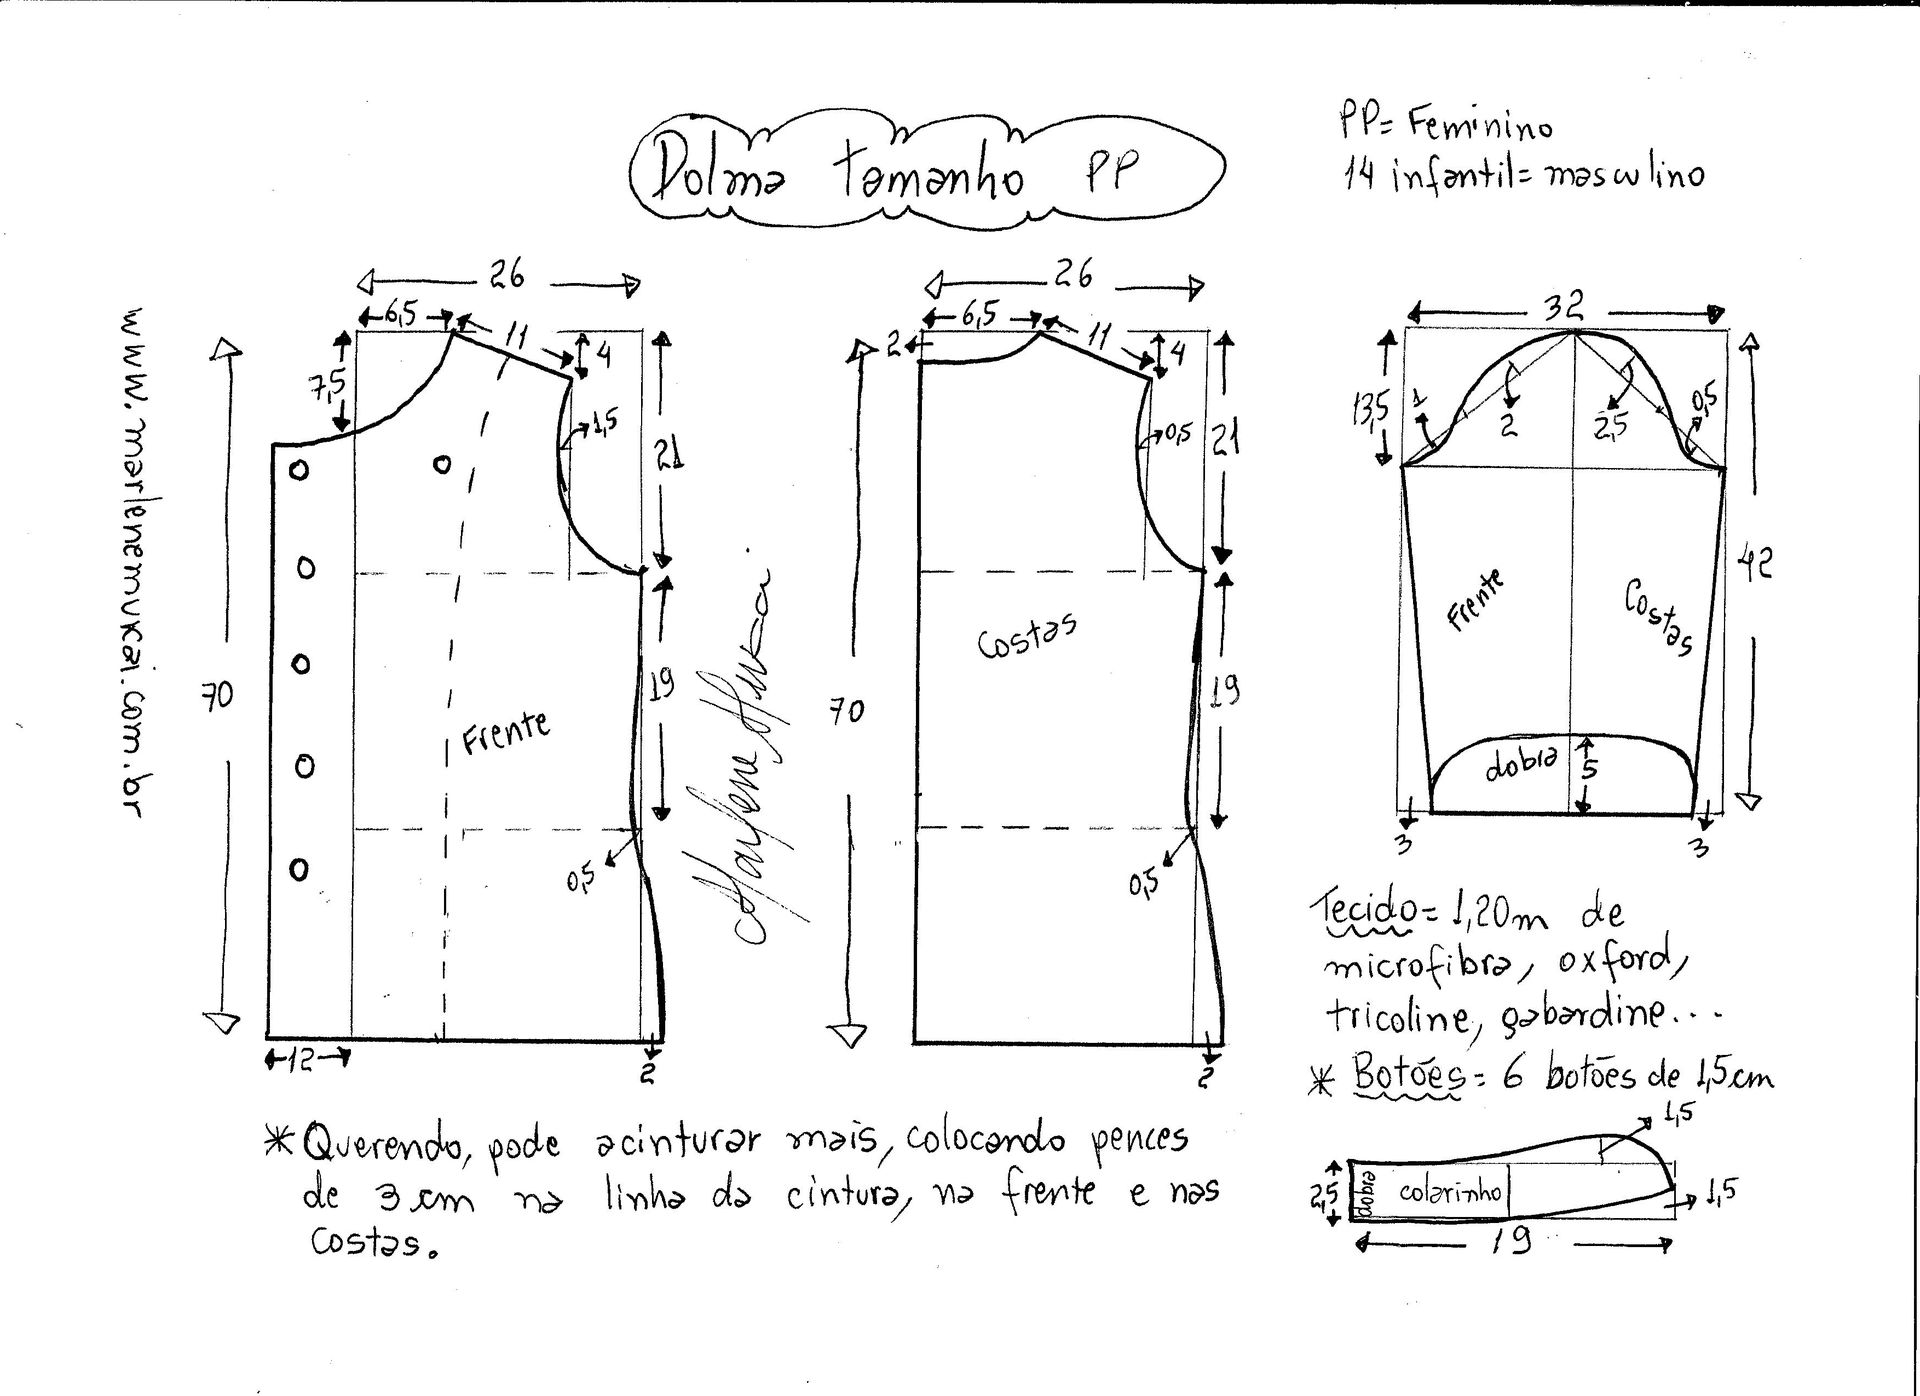 Dolma tamanho PP
PP= Feminino
14 infantil= masculino
www.marlenemukai.com.br
26
6,5
11
4
7,5
1,5
21
70
19
Frente
0,5
12
2
Marlene Mukai
26
6,5
11
4
2
0,5
21
70
Costas
19
0,5
2
32
13,5
1
2
2,5
0,5
42
Frente
Costas
dobra
5
3
3
Tecido= 1,20m de
microfibra, oxford,
tricoline, gabardine...
* Botões= 6 botões de 1,5cm
1,5
2,5
dobra
colarinho
1,5
19
* Querendo, pode acinturar mais, colocando pences
de 3 cm na linha da cintura, na frente e nas
costas.